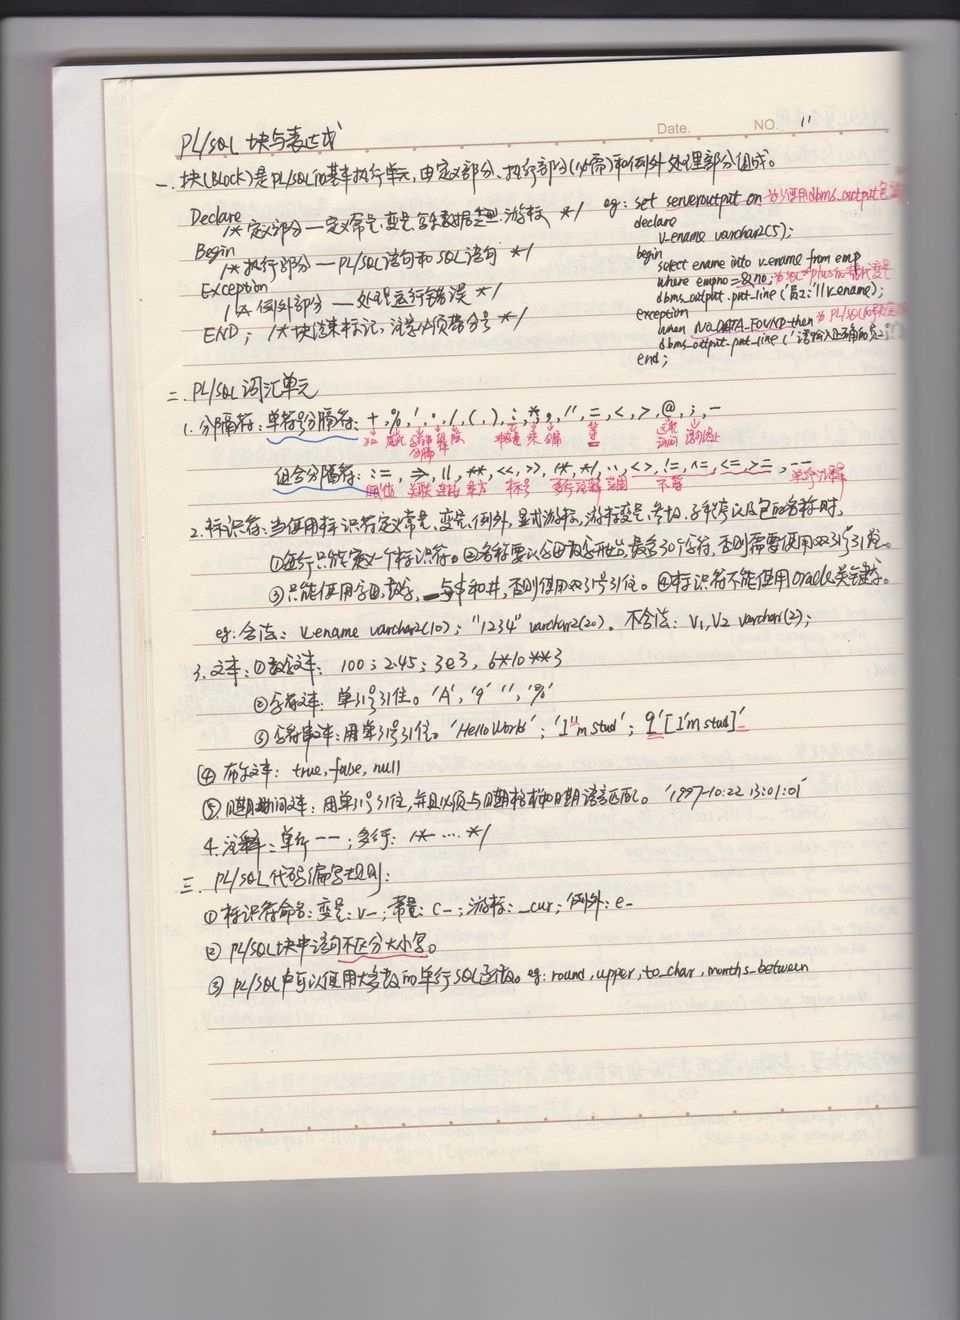 Date. NO. 11
PL/SQL 块与表达式
一. 块(Block)是PL/SQL的基本执行单元,由定义部分、执行部分(必需)和例外处理部分组成。
Declare
/* 定义部分—定义常量、变量、复杂数据类型、游标 */
Begin
/* 执行部分—PL/SQL语句和SQL语句 */
Exception
/* 例外部分—处理运行错误 */
END; /* 块结束标记,注意必须带分号 */
eg: set serveroutput on 为了使用dbms_output包
declare
v_ename varchar2(5);
begin
select ename into v_ename from emp
where empno=&no; 为SQL*plus的替代变量
dbms_output.put_line('员工:'||v_ename);
exception
when NO_DATA_FOUND then 为PL/SQL的
dbms_output.put_line('请输入正确的员工
end;
二. PL/SQL 词汇单元
1. 分隔符: 单符号分隔符: + , % , ' , . , / , ( , ) , : , * , , , " , = , < , > , @ , ; , -
组合分隔符: := , => , || , ** , << , >> , /* , */ , .. , <> , != , ^= , <= , >= , --
赋值 关联 连接 乘方 标号 多行注释 范围 不等 单行注释
2. 标识符: 当使用标识符定义常量、变量、例外、显式游标、游标变量、参数、子程序以及包的名称时,
①每行只能定义一个标识符。②名称要以字母开始,最多30个字符,否则需要使用双引号引住。
③只能使用字母、数字、_、$和#,否则使用双引号引住。④标识符不能使用Oracle关键字。
eg: 合法: v_ename varchar2(10); "1234" varchar2(20). 不合法: V1,V2 varchar(2);
3. 文本: ①数字文本: 100; 2.45; 3e3, 6*10**3
②字符文本: 单引号引住。'A', '9' ' ', '%'
③字符串文本: 用单引号引住。'Hello World'; 'I''m stud'; q'[I'm stud]'
④ 布尔文本: true, false, null
⑤ 日期时间文本: 用单引号引住,并且必须与日期格式和日期语言匹配。'1997-10-22 13:01:01'
4. 注释: 单行 --; 多行: /* .... */
三. PL/SQL 代码编写规则:
① 标识符命名: 变量: v_; 常量: c_; 游标: _cur; 例外: e_
② PL/SQL块中语句不区分大小写。
③ PL/SQL中可以使用大多数的单行SQL函数。eg: round, upper, to_char, months_between